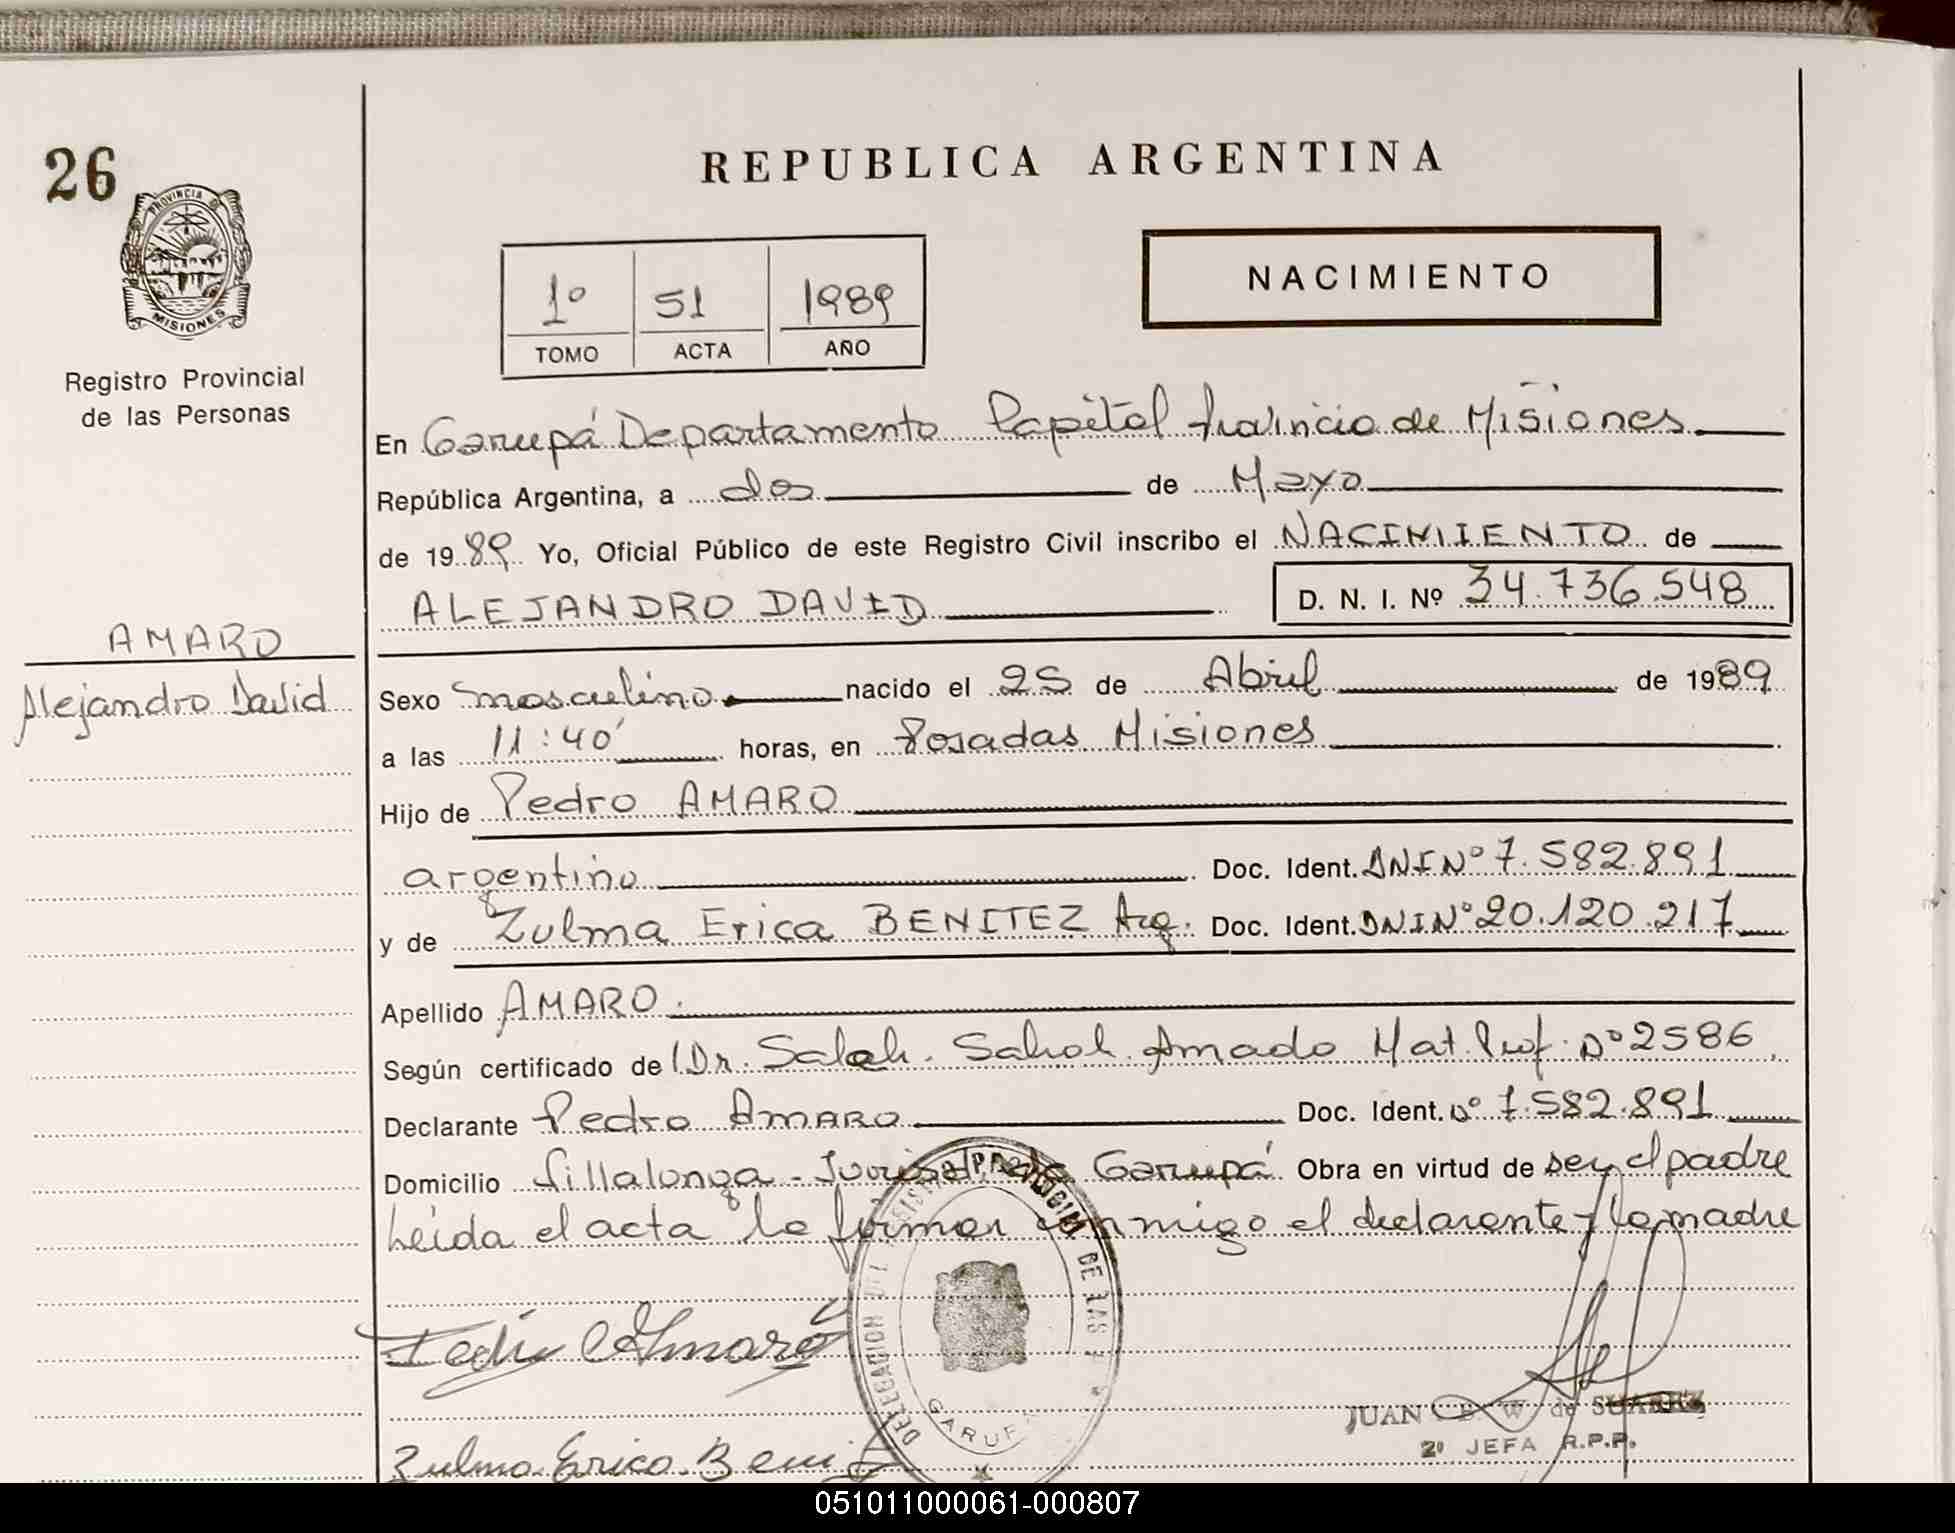 26
PROVINCIA DE
MISIONES
Registro Provincial
de las Personas
REPUBLICA ARGENTINA
1º 51 1989
TOMO ACTA AÑO
NACIMIENTO
En Garupá Departamento Capital Provincia de Misiones
República Argentina, a dos de Mayo
de 1989 Yo, Oficial Público de este Registro Civil inscribo el NACIMIENTO de
ALEJANDRO DAVID D. N. I. Nº 34.736.548
AMARO
Alejandro David
Sexo masculino nacido el 25 de Abril de 1989
a las 11:40' horas, en Posadas Misiones
Hijo de Pedro AMARO
argentino Doc. Ident. DNI Nº 7.582.891
y de Zulma Erica BENITEZ Arg. Doc. Ident. DNI Nº 20.120.217
Apellido AMARO.
Según certificado de Dr. Saleh. Sahol. Amado Mat. Prof. Nº 2586.
Declarante Pedro AMARO Doc. Ident. Nº 7.582.891
Domicilio Villalonga - Garupá Obra en virtud de ser el padre
Leída el acta la firman conmigo el declarante y la madre
DELEGACION DEL REGISTRO PROVINCIAL DE LAS
GARUP
Pedro Amaro
JUAN de SUAREZ
2º JEFA R.P.P.
Zulma Erica Benit
051011000061-000807